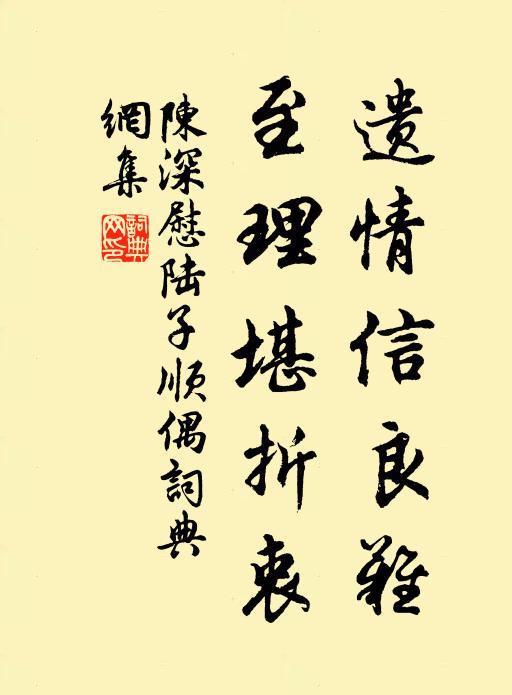 遗情信良難
至理堪折衷
陳深慰陆子順偶詞典
網集
詞典网印